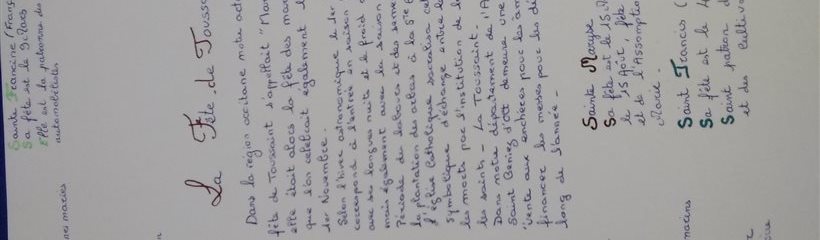 Sainte Francine (Franç
Sa fête est le 9 Mars
Elle est la patronne des
automobilistes
nes maries
La Fête de Touss
Dans la région occitane notre act
fête de Toussaint s'appellait "Mar
elle était alors la fête des mor
que l'on célébrait également l
1er Novembre.
Selon l'hiver astronomique le 1er
correspond à l'entrée en saison
avec ses longues nuits et le froid
mais également avec la saison
Période des labours et des seme
la plantation des arbres à la Ste
l'église Catholique sacralisa ce
symbolique d'échange entre le
les morts par l'institution de la
les saints - La Toussaint.
Dans notre département de l'A
Saint Geniez d'Olt demeure une
"Vente aux enchères pour les âm
financer les messes pour les dé
long de l'année -
Sainte Maryse
Sa fête est le 15
le 15 Août, fête
et de l'Assompti
Marie.
marins
Saint Francis (
Sa fête est le 4
Saint patron d
et des Cultiva